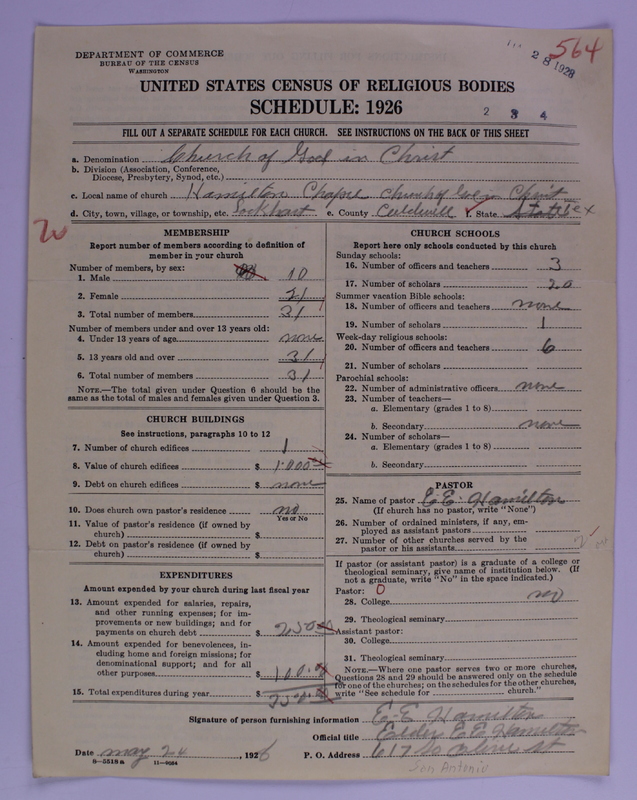 564
28 1928
DEPARTMENT OF COMMERCE
BUREAU OF THE CENSUS
WASHINGTON
UNITED STATES CENSUS OF RELIGIOUS BODIES
SCHEDULE: 1926
2 3 4
FILL OUT A SEPARATE SCHEDULE FOR EACH CHURCH. SEE INSTRUCTIONS ON THE BACK OF THIS SHEET
a. Denomination Church of God in Christ
b. Division (Association, Conference, Diocese, Presbytery, Synod, etc.)
c. Local name of church Hamilton Chapel Church of God in Christ
d. City, town, village, or township, etc. Lockhart e. County Caldwell f. State Tex
MEMBERSHIP
Report number of members according to definition of
member in your church
Number of members, by sex:
1. Male 10
2. Female 21
3. Total number of members 31
Number of members under and over 13 years old:
4. Under 13 years of age none
5. 13 years old and over 31
6. Total number of members 31
NOTE.—The total given under Question 6 should be the
same as the total of males and females given under Question 3.
CHURCH BUILDINGS
See instructions, paragraphs 10 to 12
7. Number of church edifices 1
8. Value of church edifices $ 1000
9. Debt on church edifices $ none
10. Does church own pastor's residence no
Yes or No
11. Value of pastor's residence (if owned by
church) $
12. Debt on pastor's residence (if owned by
church) $
EXPENDITURES
Amount expended by your church during last fiscal year
13. Amount expended for salaries, repairs,
and other running expenses; for im-
provements or new buildings; and for
payments on church debt $ 250
14. Amount expended for benevolences, in-
cluding home and foreign missions; for
denominational support; and for all
other purposes $ 100
15. Total expenditures during year $ 350
CHURCH SCHOOLS
Report here only schools conducted by this church
Sunday schools:
16. Number of officers and teachers 3
17. Number of scholars 20
Summer vacation Bible schools:
18. Number of officers and teachers none
19. Number of scholars 1
Week-day religious schools:
20. Number of officers and teachers 6
21. Number of scholars
Parochial schools:
22. Number of administrative officers none
23. Number of teachers—
a. Elementary (grades 1 to 8)
b. Secondary none
24. Number of scholars—
a. Elementary (grades 1 to 8)
b. Secondary
PASTOR
25. Name of pastor E.E. Hamilton
(If church has no pastor, write "None")
26. Number of ordained ministers, if any, em-
ployed as assistant pastors
27. Number of other churches served by the
pastor or his assistants
If pastor (or assistant pastor) is a graduate of a college or
theological seminary, give name of institution below. (If
not a graduate, write "No" in the space indicated.)
Pastor: 0
28. College no
29. Theological seminary
Assistant pastor:
30. College
31. Theological seminary
NOTE.—Where one pastor serves two or more churches,
Questions 28 and 29 should be answered only on the schedule
for one of the churches; on the schedules for the other churches,
write "See schedule for church."
Signature of person furnishing information E.E Hamilton
Official title Elder E.E Hamilton
Date may 24, 1926 P. O. Address 617 st
San Antonio
8—5518a 11—9064